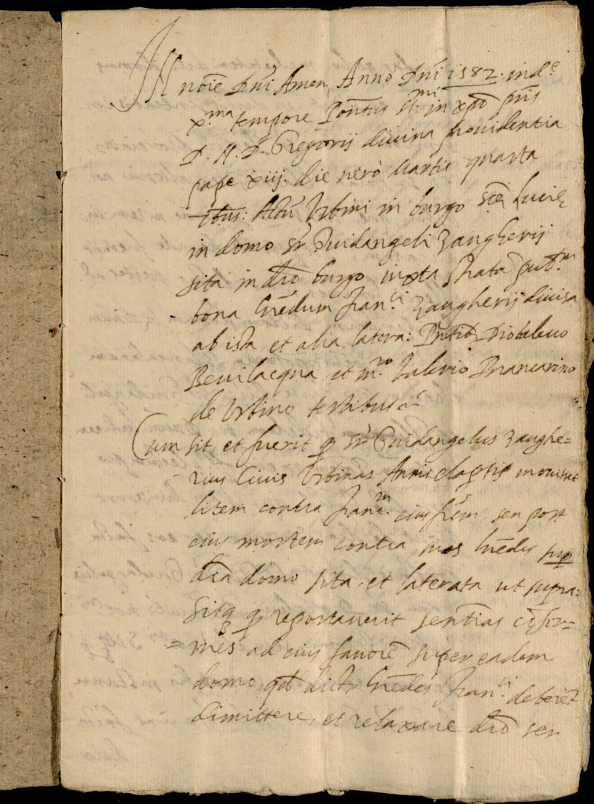 IN noīe Dnī Amen Anno Dnī 1582. ind.e
x.ma tempore Pontūs S.mi in xpō pris
D. N. D. Gregorij divina providentia
pape xiij. die vero Martis quarta
Actū Urbini in burgo Stē Luciē
in domo Sr Guidangeli Zaugherij
sita in dīo burgo iuxta strata pub.m
bona hēdum Fran.ci Zaugherij divisa
ab ista et alia latera: Pntib
Bevilacqua, et m.ro Valerio Brancarino
de Urbino testibus
Cum sit, et fuerit q Sr Guidangelus Zaughe-
rius Civis Urbinas Annis elapsis
litem contra Franc.m eius frēm seu post
eius mortem contra hēdes
dīa domo sita et laterata ut supra:
Sitq q reportaverit sentias cōfor-
= mes ad eius favorē super eadem
domo qd dicti hēdes Fran.ci
dimittere, et relaxare dīo ser